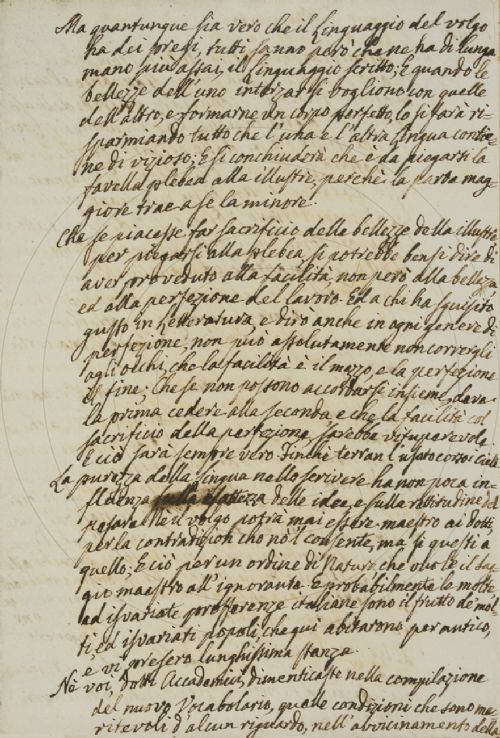 Ma quantunque sia vero che il linguaggio del volgo
ha dei pregi, tutti sanno però che ne ha di lunga
mano più assai, il linguaggio scritto; E quando le
bellezze dell'uno interzarsi vogliono con quelle
dell'altro, e formarne un corpo perfetto, lo si farà ri-
sparmiando tutto che l'una e l'altra lingua contie-
ne di vizioso; E si conchiuderà che è da piegarsi la
favella plebea alla illustre, perchè la parte mag-
giore trae a se la minore.
Che se piacesse far sacrificio delle bellezze della illustre
per piegarsi alla plebea si potrebbe bensì dire di
aver proveduto alla facilità, non però alla bellezza
ed alla perfezione del lavoro. Ed a chi ha squisito
gusto in letteratura, e dirò anche in ogni genere di
perfezione, non può assolutamente non corrergli
agli occhi, che la facilità è il mezo, e la perfezione
il fine; Che se non possono accordarsi insieme, deva
la prima cedere alla seconda e che la facilità col
sacrificio della perfezione sarebbe vituperevole
E ciò sarà sempre vero finchè terran l'usato corso i cieli
La purezza della lingua nello scrivere ha non poca in-
fluenza delle idee, e sulla rettitudine del
pensare. Ne il volgo potrà mai essere maestro ai dotti
per la contradizion che nol consente, ma sì questi a
quello; E ciò per un ordine di Natura che vuole il sag-
gio maestro all'ignorante. E probabilmente le molte
ed isvariate profferenze italiane sono il frutto de' mol-
ti, ed isvariati popoli, che qui abitarono per antico,
e vi presero lunghissima stanza.
Nè voi, dotti Accademici, dimenticaste nella compilazione
del nuovo Vocabolario, quelle condizioni che sono me-
ritevoli d'alcun riguardo, nell'avvicinamento della